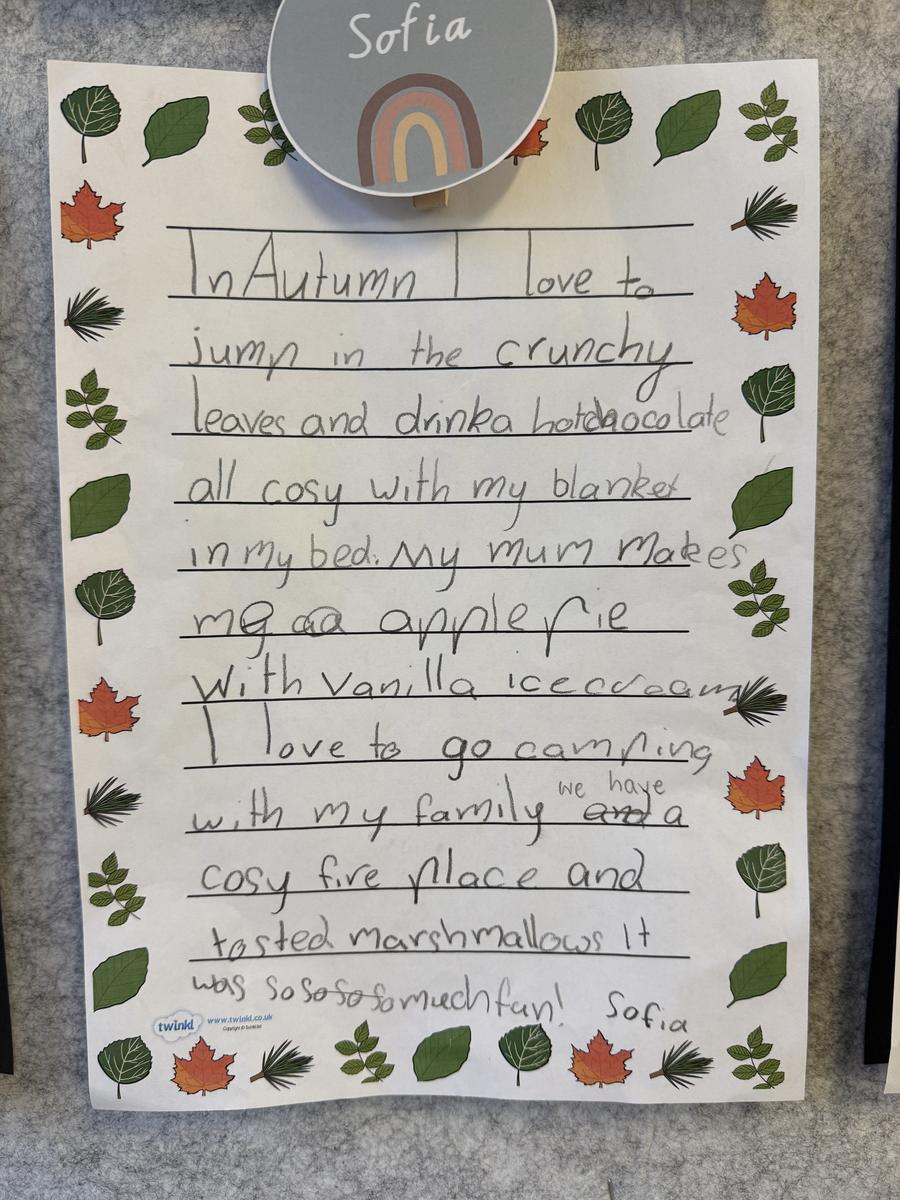 Sofia
In Autumn I love to
jump in the crunchy
leaves and drink a hot chocolate
all cosy with my blanket
in my bed. My mum makes
me a apple pie
with vanilla icecream
I love to go camping
we have
with my family and a
cosy fire place and
tosted marshmallows It
was so so so so much fun! Sofia
twinkl www.twinkl.co.uk